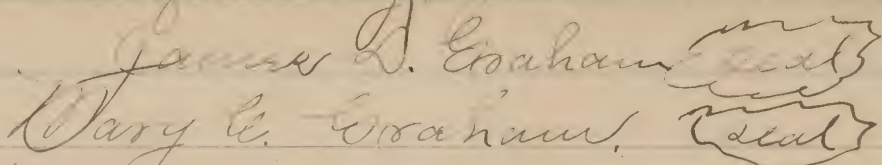 James D. Graham seal
Mary C. Graham. seal